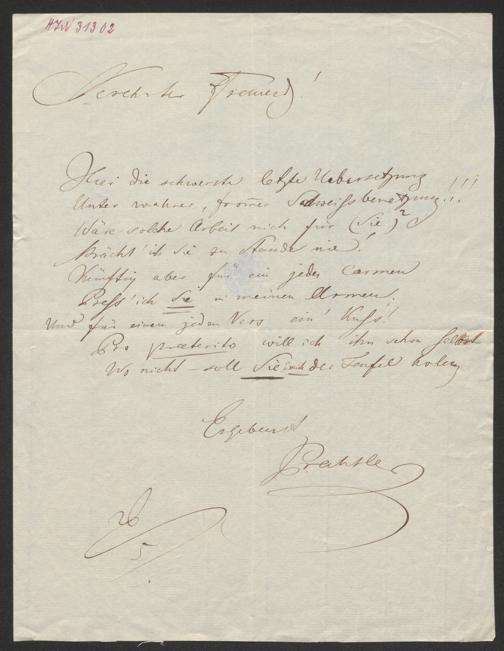 HIN 31302
Verehrter Freund!
Hier die schwerste letzte Uebersetzung
Unter wahrer, from̅er Schweissbenetzung!!!
Wäre solche Arbeit nich für (Sie)²
Brächt' ich Sie zu Stande nie!
Künftig aber für ein jedes Carmen
Press' ich Sie in meinen Armen,
Und für einen jeden Vers ein' Kuss!
Pro praeterito will ich ihn schon
Wo nicht – soll Sie der Teufel holen
Ergebenst
Prechtler
26
5.